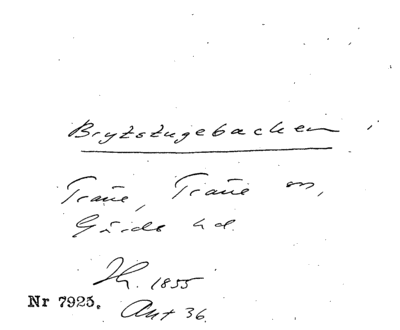 Brytstugebacken
Träne, Träne sn,
Gärds hd.
1855
Nr 7925.
36